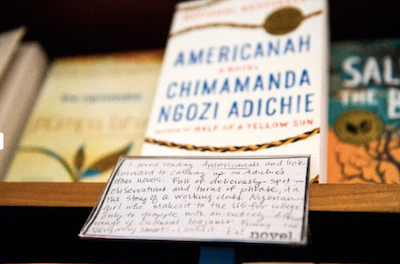 AMERICANAH
A NOVEL
CHIMAMANDA
NGOZI ADICHIE
AUTHOR OF HALF OF A YELLOW SUN
SAL
THE B
I loved reading Americanah and look
forward to catching up on Adichie's
other novels. Full of deliciously spot-on
observations and turns of phrase, it's
the story of a working class Nigerian
girl who makes it to the US for college
only to grapple with an entirely
range of cultural Funny
very very smart. I loved it
novel